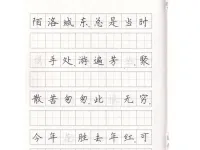 陌洛城东总是当时
手处游遍芳 聚
散苦匆匆此 无穷
今年 胜去年红可